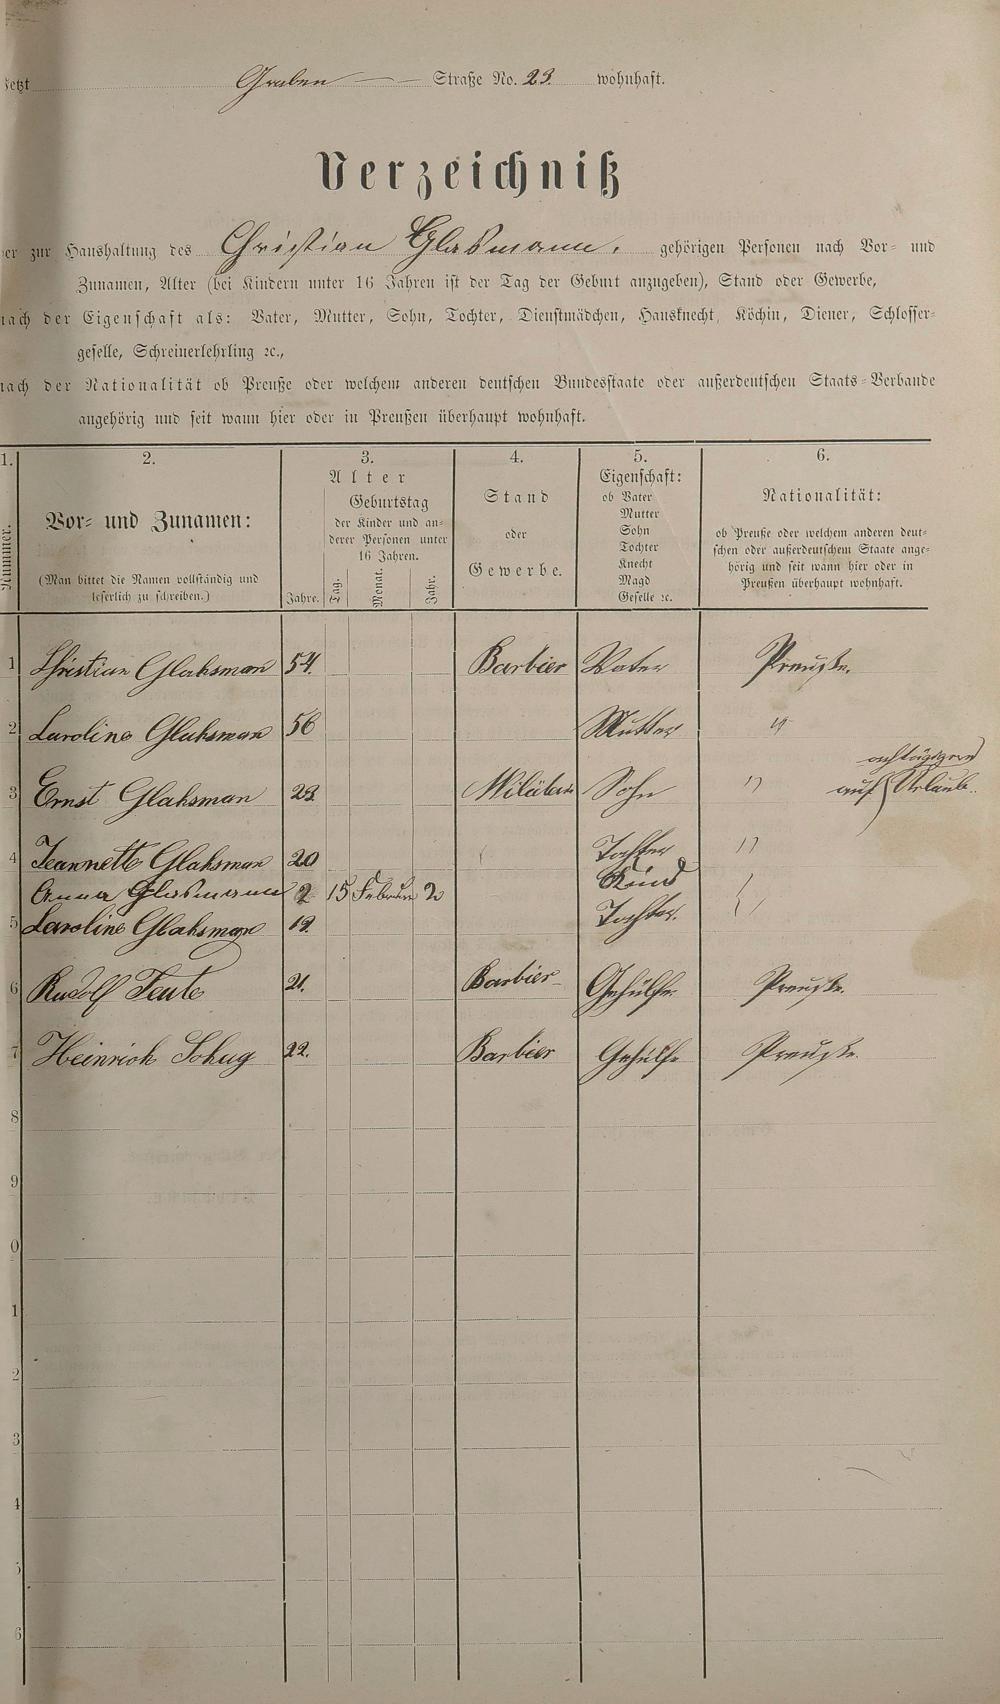 Jetzt Graben — Straße No. 23. wohnhaft.
Verzeichniß
der zur Haushaltung des Christian Glasmann. gehörigen Personen nach Vor- und
Zunamen, Alter (bei Kindern unter 16 Jahren ist der Tag der Geburt anzugeben), Stand oder Gewerbe,
nach der Eigenschaft als: Vater, Mutter, Sohn, Tochter, Dienstmädchen, Hausknecht, Köchin, Diener, Schlosser-
geselle, Schreinerlehrling ꝛc.,
nach der Nationalität ob Preuße oder welchem anderen deutschen Bundesstaate oder außerdeutschen Staats-Verbande
angehörig und seit wann hier oder in Preußen überhaupt wohnhaft.
1. 2. 3. 4. 5. 6.
Nummer.
Vor- und Zunamen:
(Man bittet die Namen vollständig und
leserlich zu schreiben.)
Alter
Jahre.
Geburtstag
der Kinder und an-
derer Personen unter
16 Jahren.
Tag. Monat. Jahr.
Stand
oder
Gewerbe.
Eigenschaft:
ob Vater
Mutter
Sohn
Tochter
Knecht
Magd
Geselle ꝛc.
Nationalität:
ob Preuße oder welchem anderen deut-
schen oder außerdeutschem Staate ange-
hörig und seit wann hier oder in
Preußen überhaupt wohnhaft.
1 Christian Glahsman 54. Barbier Vater Preuße.
2 Caroline Glahsman 56 Mutter "
3 Ernst Glahsman 23 Militär Sohn " auf Urlaub.
4 Jeannette Glahsman 20 Tochter "
Anna Glasmann 2 15 Februar 2 Kind
5 Caroline Glahsman 19. Tochter.
6 Rudolf Teute 21. Barbier Gehülfe Preuße.
7 Heinrich Schug 22. Barbier Gehülfe Preuße.
8
9
0
1
2
3
4
5
6